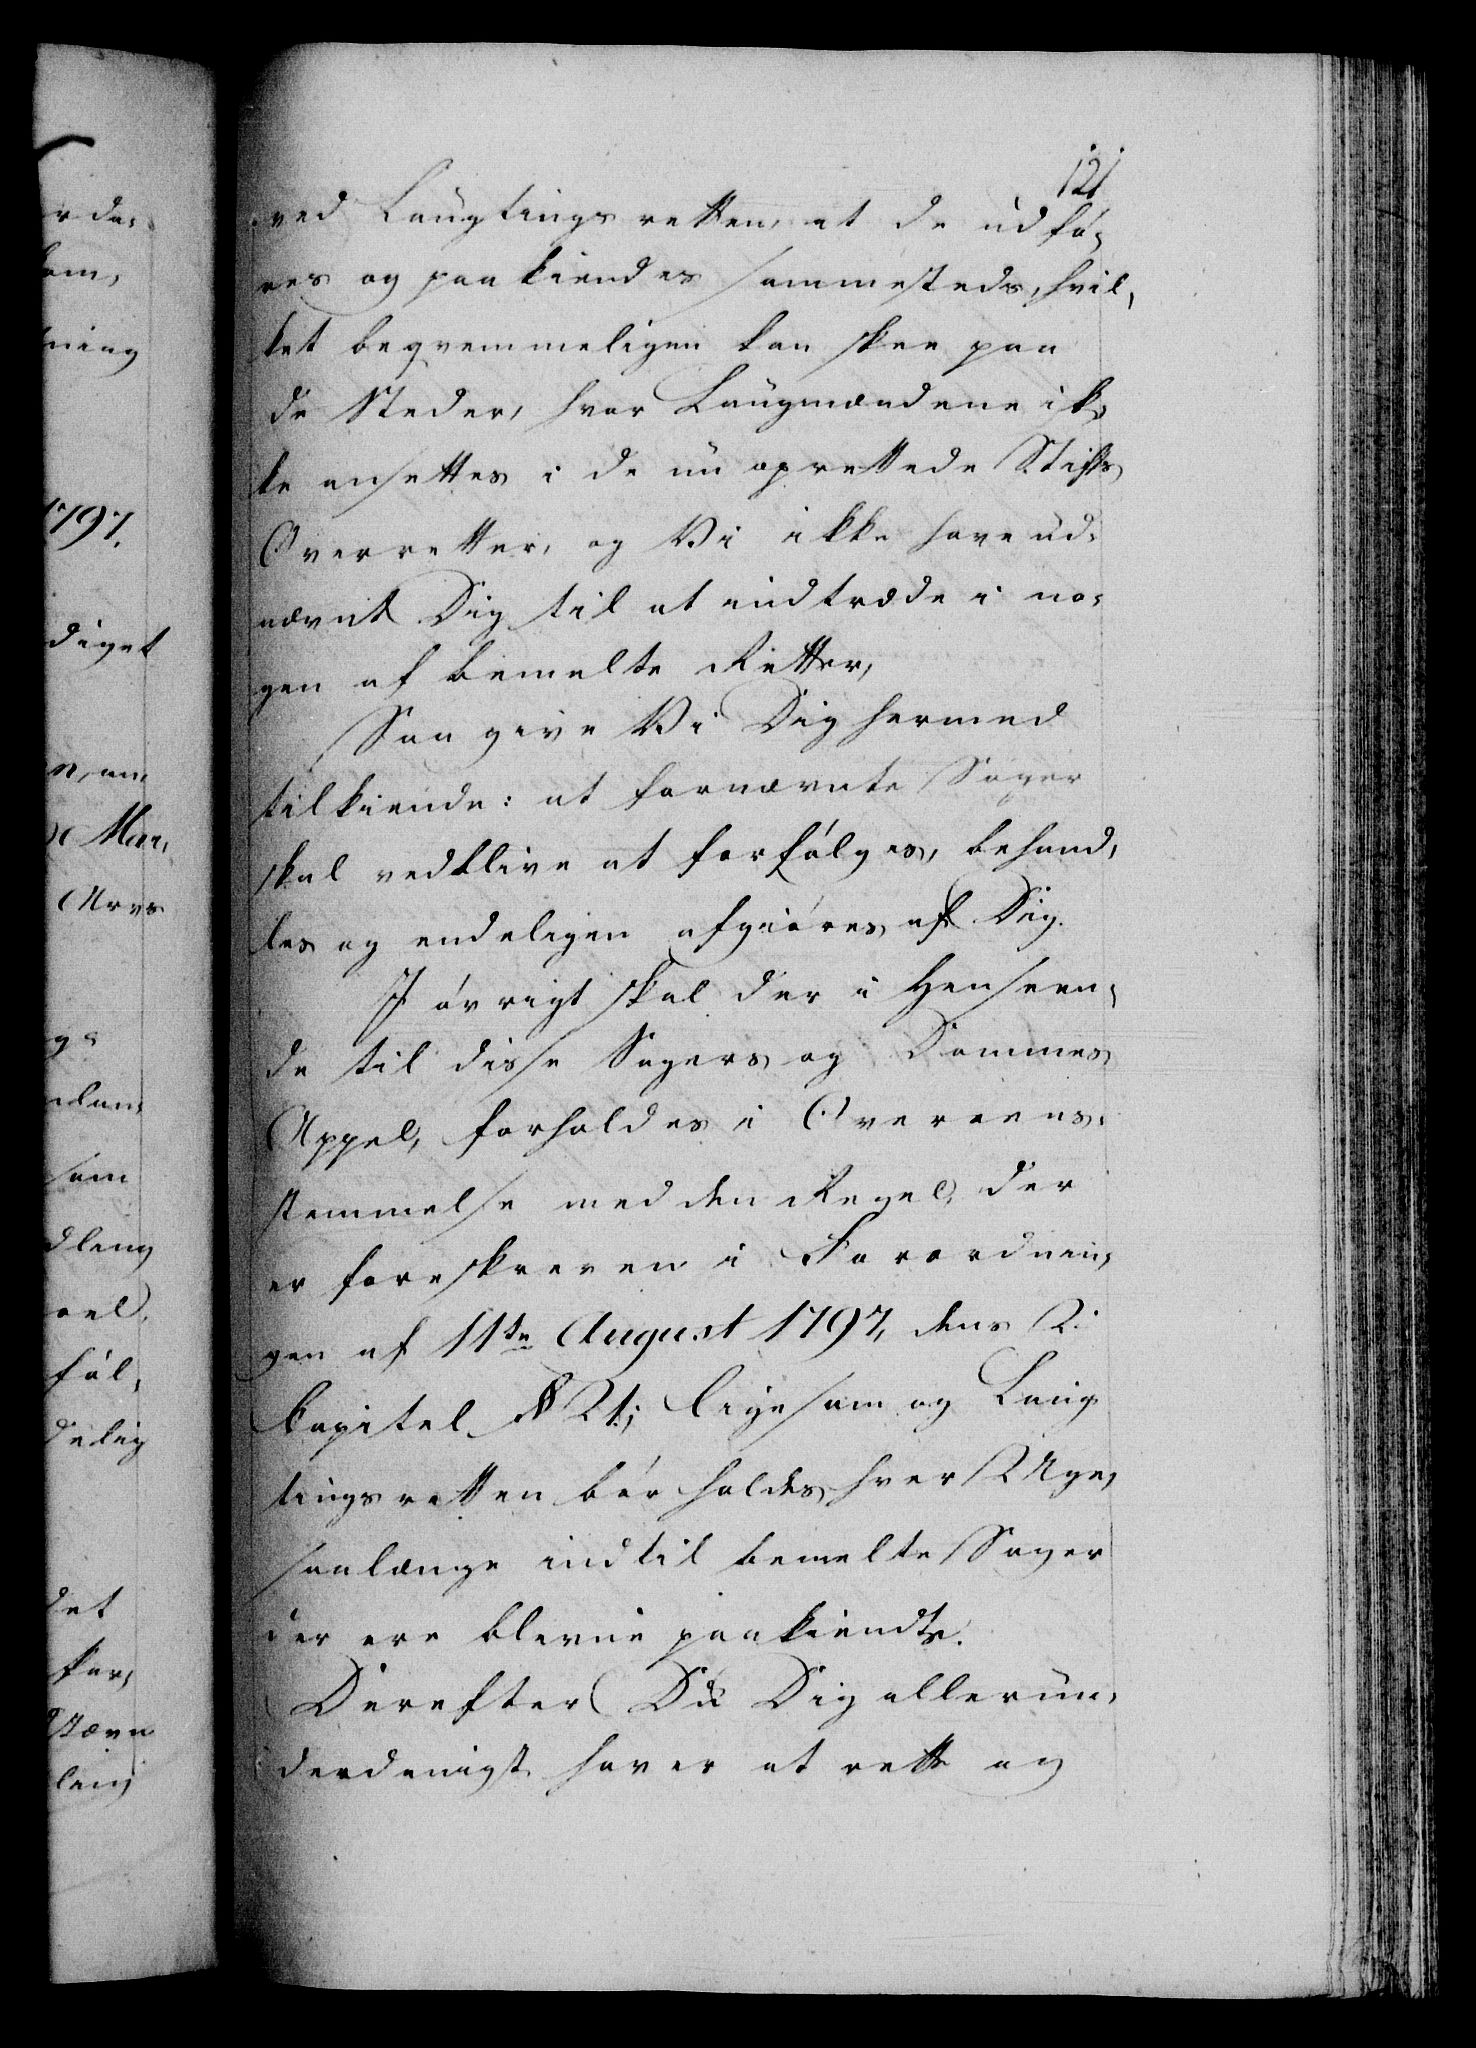 121
ved Laugtings retten, at de udfø-
res og paakiendes sammesteds, hvil-
ket beqvemmeligen kan skee paa
de Steder, hvor Laugmændene ik-
ke ansettes i de nu oprettede Stifts
Overretter, og Vi ikke have ud-
nævnt Dig til at indtræde i no-
gen af bemelte Retter,
Saa give Vi Dig hermed
tilkiende: at fornævnte Sager
skal vedblive at forfølges, behand-
les og endeligen afgiøres af Dig.
I øvrigt skal der i Henseen-
de til disse Sagers og Dommes
Appel, forholdes i Overeens-
stemmelse med den Regel, der
er foreskreven i Forordnin-
gen af 11te August 1797, dens 2.
Capitel § 21; ligesom og Laug-
tingsretten bør holdes hver 2 Uger,
saalænge indtil bemelte Sager
der ere blevne paakiendte.
Derefter Du Dig allerun-
derdanigst haver at rette og
r da-
som,
ning
1797.
diget
n, an-
Mar,
Arvs
som
dling
føl-
delig
det
for-
Stævn
ling